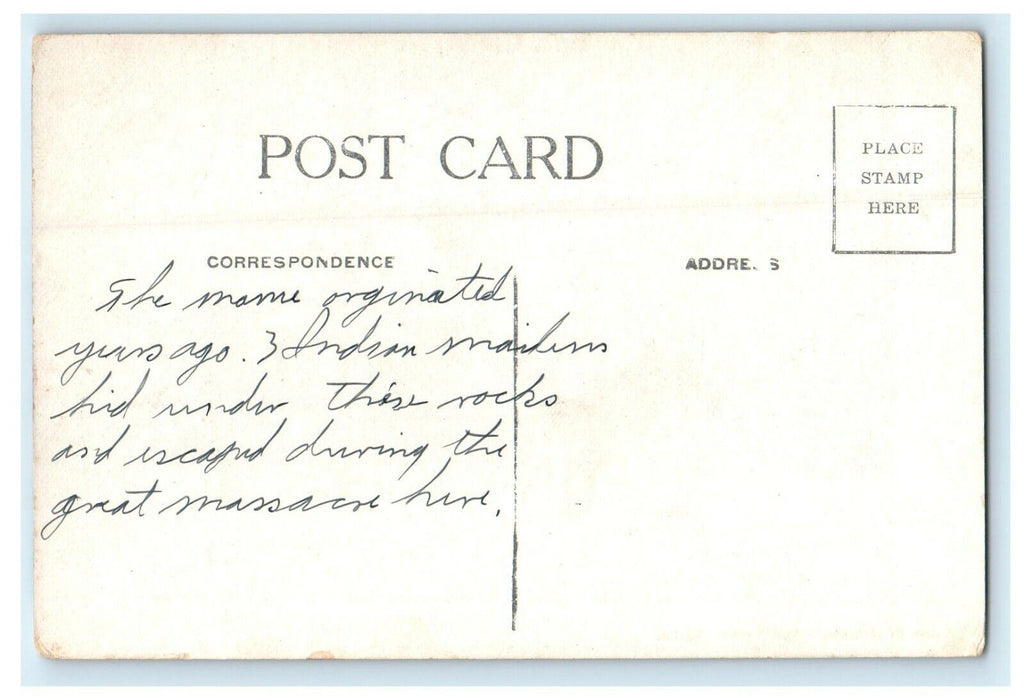 POST CARD
PLACE
STAMP
HERE
CORRESPONDENCE
ADDRE. S
The name orginated
years ago. 3 Indian maidens
hid under these rocks
and escaped during the
great massacre here.